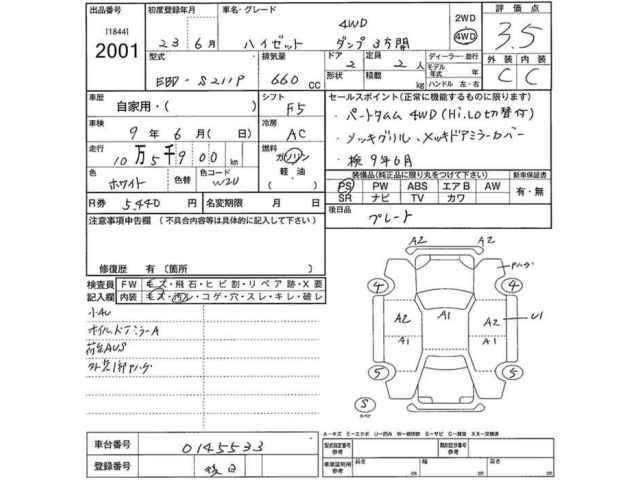 出品番号 初度登録年月 車名・グレード 4WD 2WD 評価点
[1844] 23 6月 ハイゼット ダンプ 3方開 4WD 3.5
2001 型式 排気量 ドア 定員 ディーラー・並行 外装 内装
EBD-S211P 660 cc 2 2人 モデル年式 年
形状 積載 kg ハンドル 左・右 C C
車歴 自家用・( ) シフト F5 セールスポイント(正常に機能するものに限ります)
車検 9年6月( 日) 冷房 AC ・パートタイム 4WD (Hi.Lo切替付)
走行 10万5千900 km 燃料 ガソリン 軽油 ( ) ・メッキグリル、メッキドアミラーカバー
・検 9年6月
色 ホワイト 色替 色コード W24 装備品(純正品に限り丸をつけて下さい) 新車保証書
PS PW ABS エアB AW 有・無
R券 5,440 円 名変期限 月 日 SR ナビ TV カワ
注意事項申告欄(不具合内容等は具体的に記入して下さい) 後日品 プレート
修復歴 有(箇所 )
検査員記入欄 FW キズ・飛石・ヒビ割・リペア跡・X要
内装 キズ・汚レ・コゲ・穴・スレ・キレ・破レ
小AU
ホイル、ドアミラーA
荷台AUS
外装1部Pハゲ
A2 A2 Pハゲ
4 4
A2 A1 A2 U1
A1 A1
5 5
S
スペア
A-キズ E-エクボ U-凹み W-補修跡 S-サビ C-腐蝕 XX-交換済
車台番号 0145533 型式指定番号 参考 類別区分番号 参考
登録番号 後日 車庫証明用 参考 長さ cm 幅 cm 高さ cm